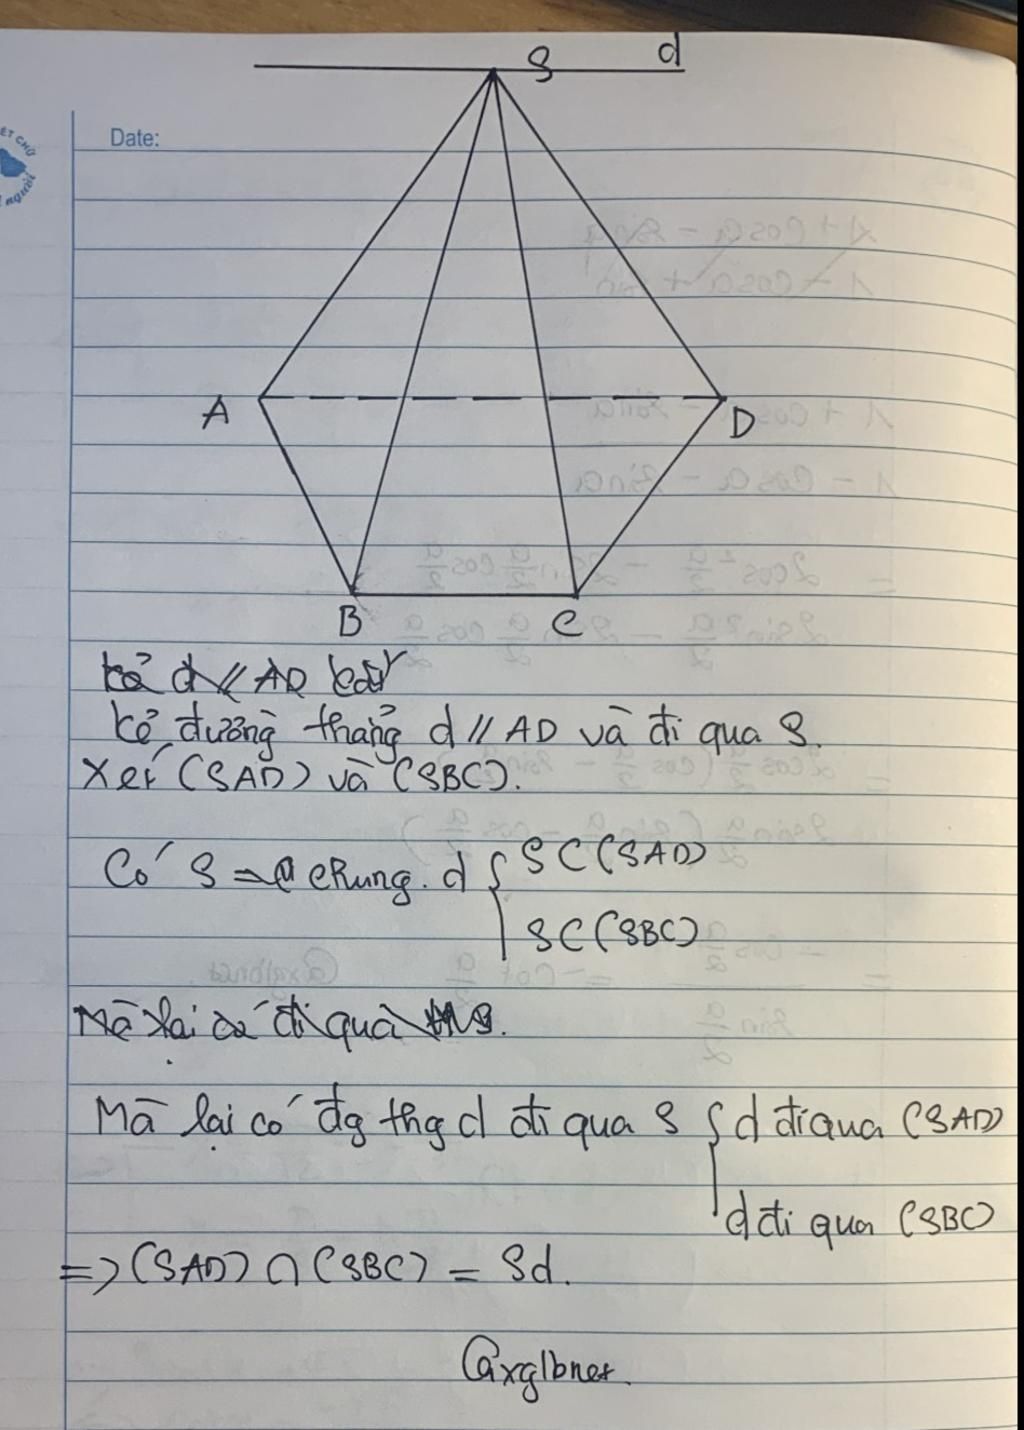 S d
Date:
A
D
B C
Kẻ đường thẳng d // AD và đi qua S.
Xét (SAD) và (SBC).
Có S chung. d { S ⊂ (SAD)
S ⊂ (SBC)
Mà lại có đi qua
Mà lại có đg thg d đi qua S { d đi qua (SAD)
d đi qua (SBC)
=> (SAD) ∩ (SBC) = Sd.